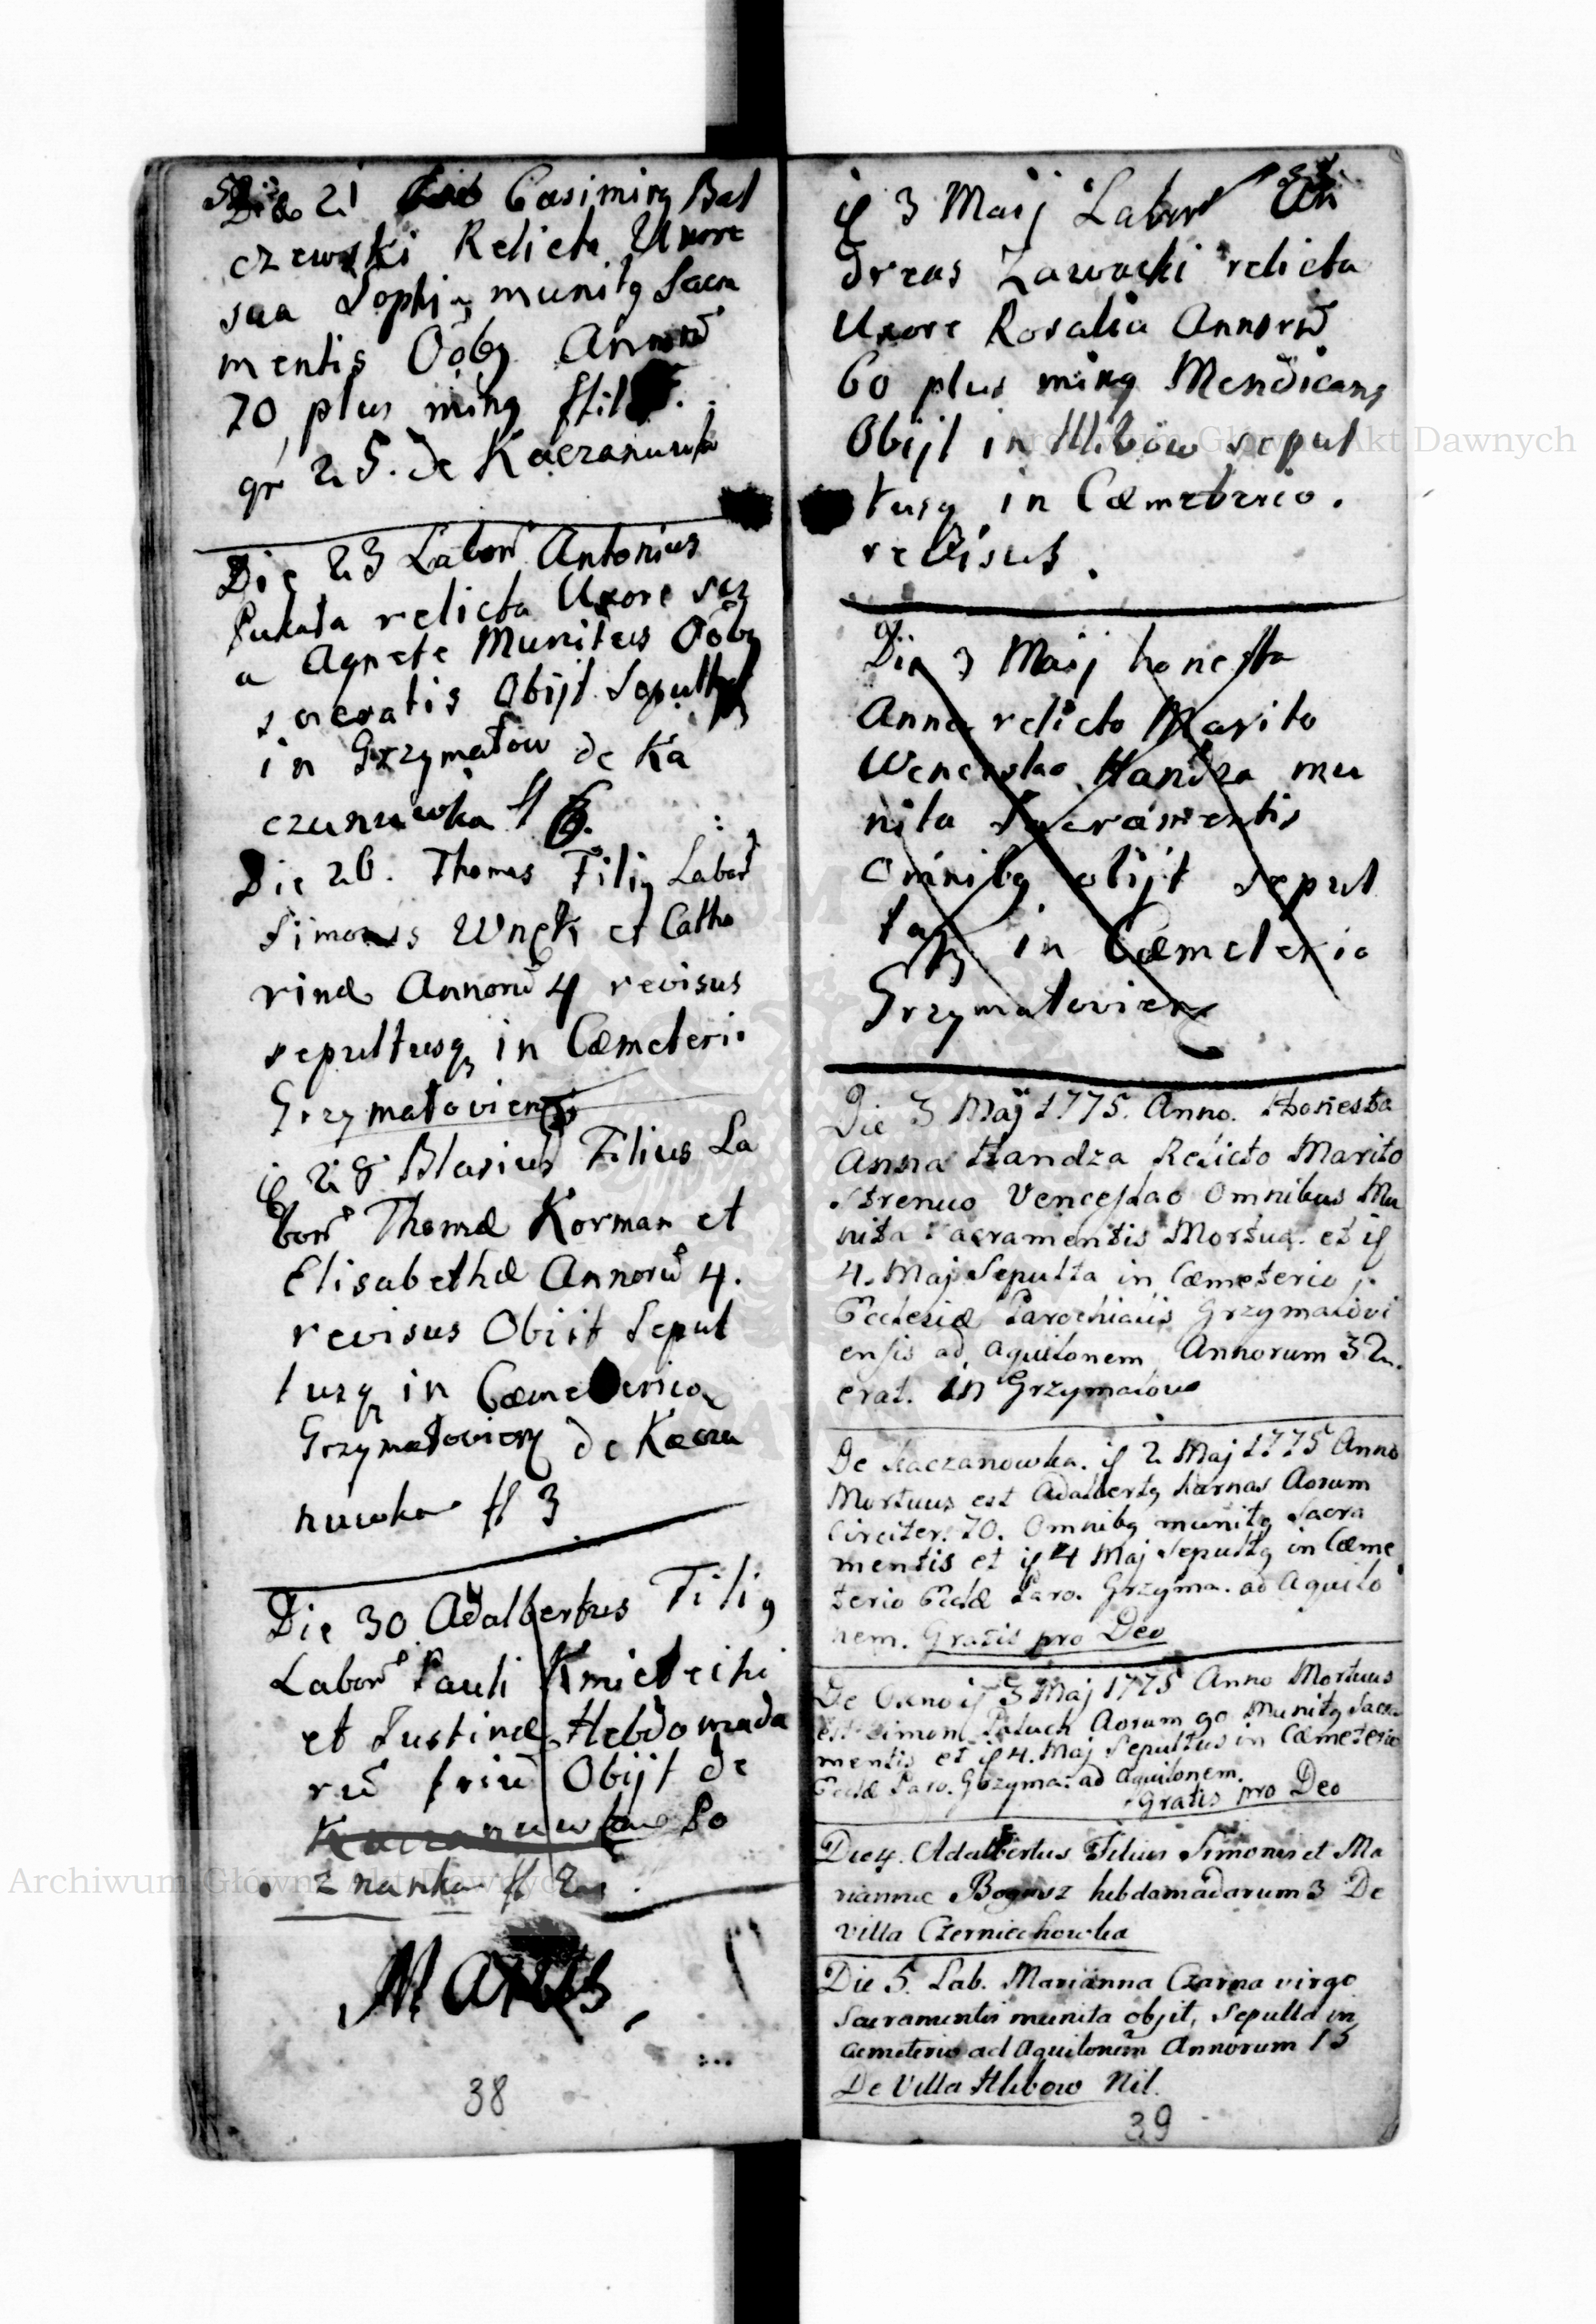 Die 21 Casimirq Bal
czewski Relicta Uxore
sua Sophia munitq Sacra
mentis Oobq Annorū
70 plus minq
gr 25. de Kaczanuwka
Die 23 Laborˢ Antonius
Pukała relicta Uxore
a Agnete Munitus Oobq
Obijt
in Grzymałow de Ka
czunuwka fl 6.
Die 26. Thomas Filiq Laborˢ
Simonis Wnęk et Catha
rinæ Annorū 4 revisus
sepultusq in Cœmeteri.
Grzymałovien
ij 28 Blasius Filius La
borˢ Thomæ Korman et
Elisabethæ Annorū 4.
revisus Obiit Sepul
tusq in
Grzymałovien de Kacza
nuwka fl 3
Die 30 Adalbertus Filiq
Laborˢ Pauli Kmiet
et Justinæ Hebdomada
rū triū Obijt de
Kaczanuwka Po
znanka fl 2
Martˢ
38
ij 3 Maij Laborˢ An
dreas Zawacki relicta
Uxore Rosalia Annorū
60 plus minq Mendicans
Obijt in Hlibow sepul
tusq in Cœmeterio.
revisus.
Die 3 Maij honesta
Anna relicto Marito
Wenceslao Handza mu
nita Sacramentis
Omnibq obijt sepul
taq in Cœmeterio
Grzymałovien
Die 3 Maij 1775. Anno. Honesta
Anna Handza Relicto Marito
Strenuo Venceslao Omnibus Mu
nita Sacramentis Mortua. et ij
4. Maj Sepulta in Cœmeterio
Ecclesiæ Parochialis Grzymałovi
ensis ad aquilonem Annorum 32.
erat. in Grzymałow
De Kaczanowka. ij 2 Maj 1775 Anno
Mortuus est Adalbertq Karnas Aorum
Circiter. 70. Omnibq munitq Sacra
mentis et ij 4 Maj Sepultq in Cœme
terio Eccłæ Paro. Grzyma. ad Aquilo
nem. Gratis pro Deo
De Okno ij 3 Maj 1775 Anno Mortuus
est Simon Paluch Aorum 90 Munitq Sacra
mentis et ij 4. Maj Sepultus in Cœmeterio
Eccłæ Paro. Grzyma. ad Aquilonem.
Gratis pro Deo
Die 4. Adalbertus Filius Simonis et Ma
riannæ Bogusz hebdomadarum 3 De
villa Czerniechowka
Die 5. Lab. Marianna Czarna virgo
Sacramentis munita objit, Sepulta in
Cæmeterio ad Aquilonem Annorum 15
De Villa Hlibow Nil.
39
Archiwum Główne Akt Dawnych
Archiwum Główne Akt Dawnych